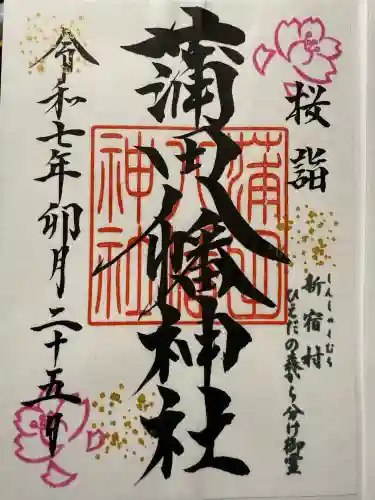 桜詣
しんしゅくむら
新宿村
ひとだの森から分け御霊
蒲田八幡神社
蒲田
八幡
神社
令和七年卯月二十五日